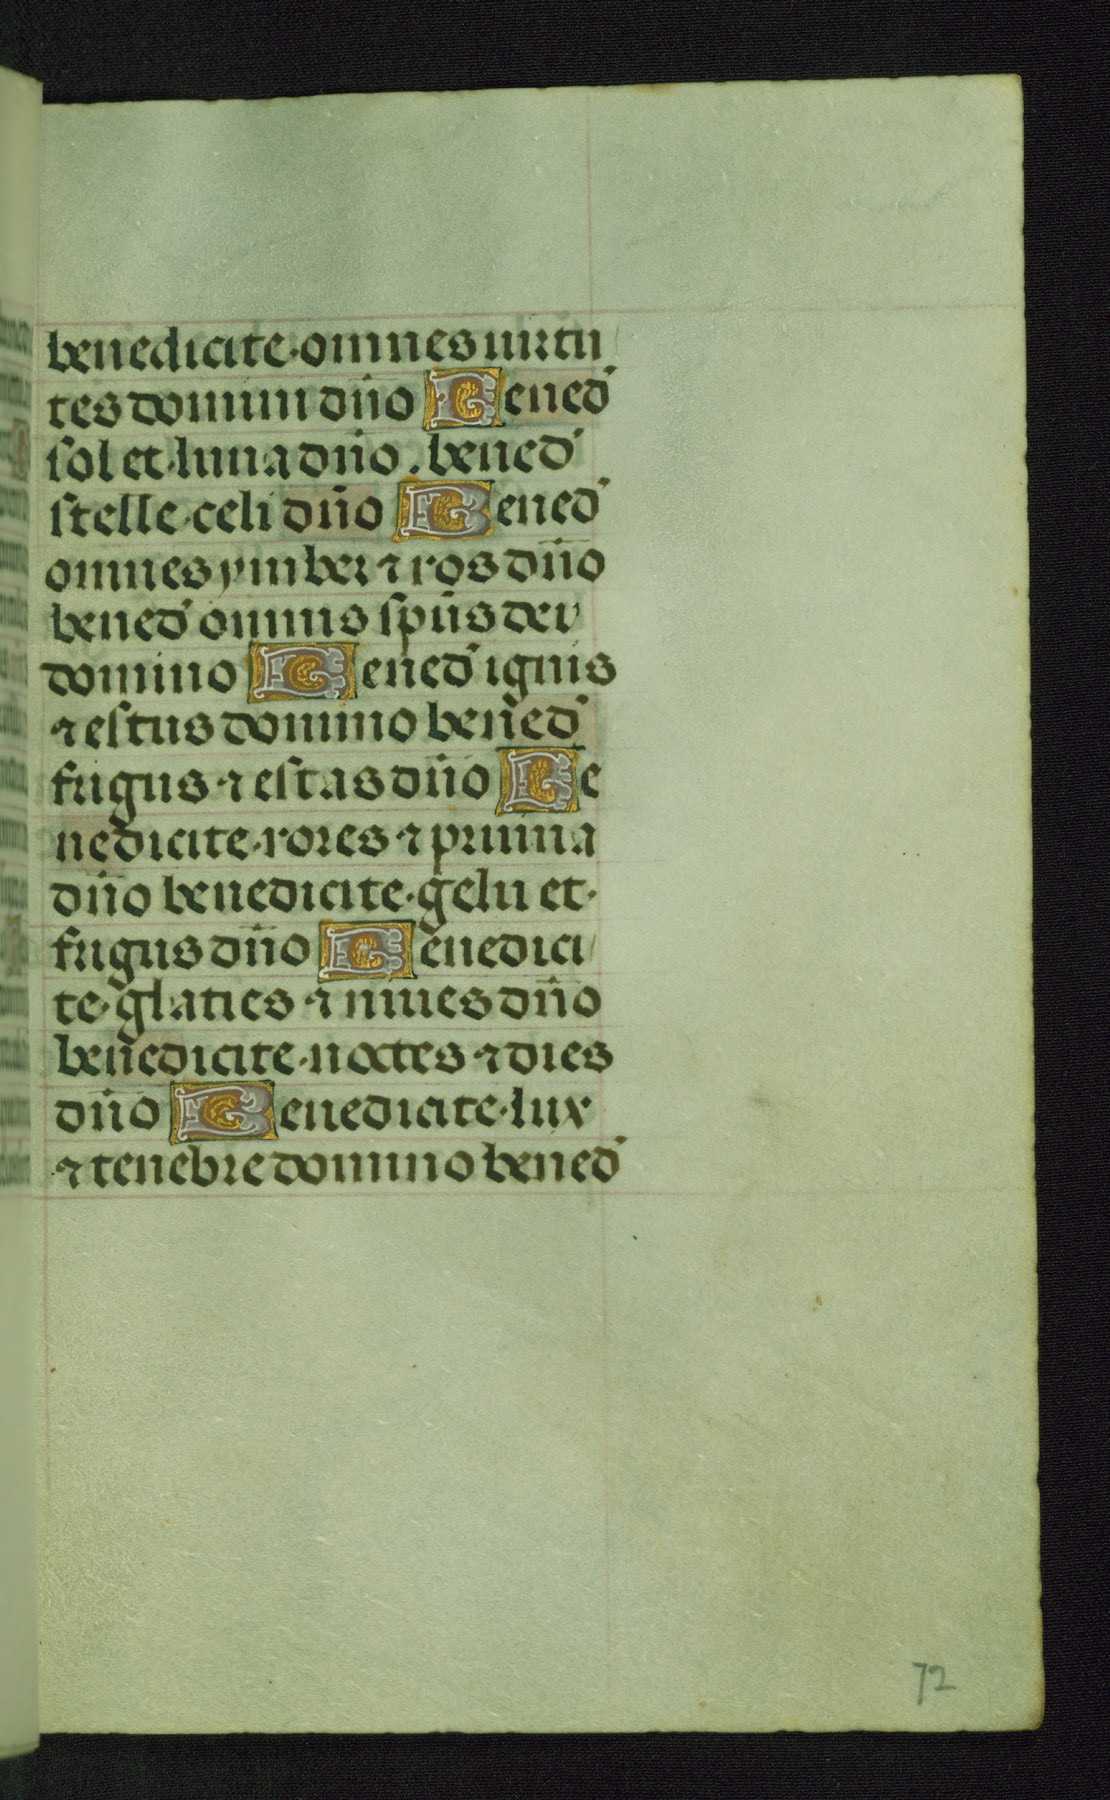 benedicite omnes uirtu
tes domini dn̄o Bened̄
sol et luna dn̄o. bened̄
stelle celi dn̄o Bened̄
omnes ymber ⁊ ros dn̄o
bened̄ omnis sp̄us dei
domino Bened̄ ignis
⁊ estus domino bened̄
frigus ⁊ estas dn̄o Be
nedicite rores ⁊ pruina
dn̄o benedicite gelu et
frigus dn̄o Benedici
te glaties ⁊ niues dn̄o
benedicite noctes ⁊ dies
dn̄o Benedicite lux
⁊ tenebre domino bened̄
72